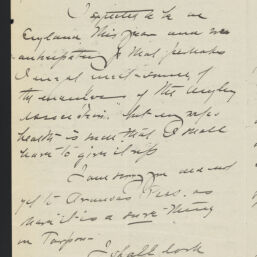 I expected to be in
England this year and was
anticipating that perhaps
I might meet some of
the members of the Anglers
association. But my wife's
health is such that I shall
have to give it up
I am sorry you did not
get to Aransas Pass, as
there it is a sure thing
on Tarpon.
I shall look